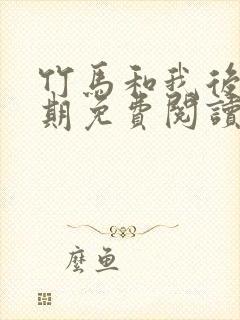 竹馬和我後
期免費閱讀
麼魚